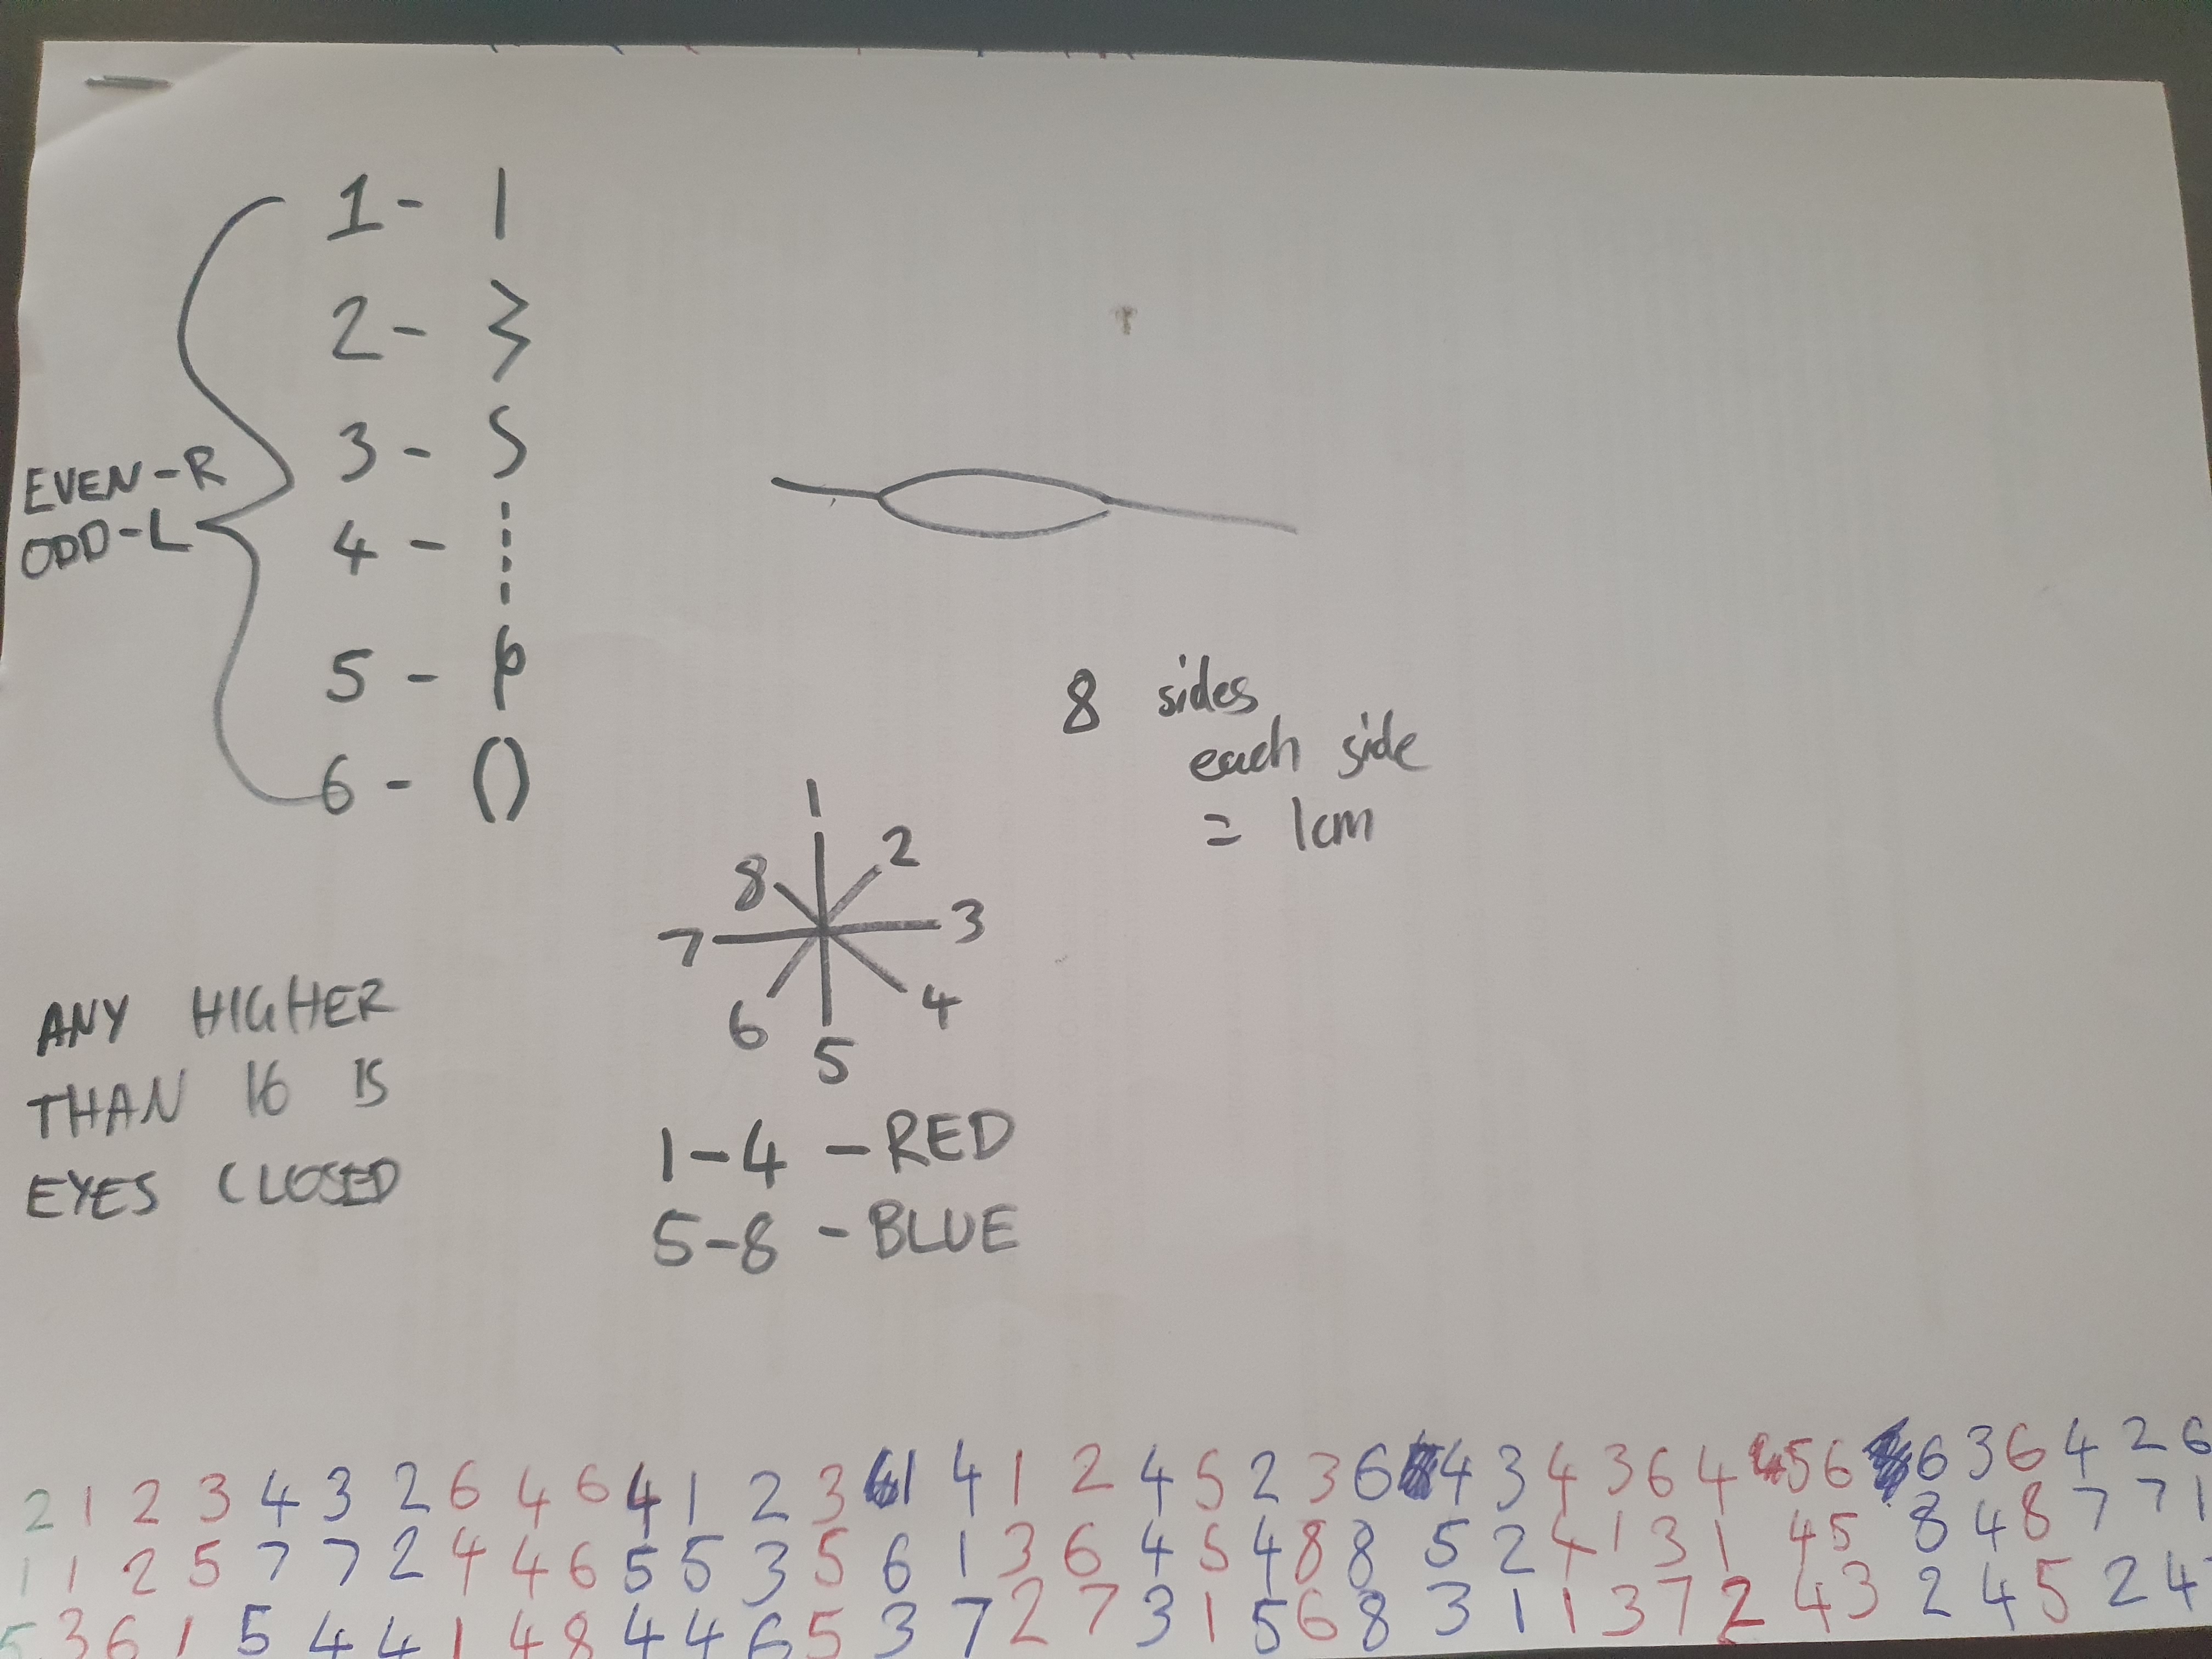 1 - |
2 -
3 - S
4 -
5 -
6 - ()
EVEN - R
ODD - L
8 sides
each side
= 1cm
1
2
3
4
5
6
7
8
ANY HIGHER
THAN 16 IS
EYES CLOSED
1-4 - RED
5-8 - BLUE
2 1 2 3 4 3 2 6 4 6 4 1 2 3 1 4 1 2 4 5 2 3 6 4 3 4 3 6 4 5 6 6 3 6 4 2 6
1 1 2 5 7 7 2 4 4 6 5 5 3 5 6 1 3 6 4 5 4 8 8 5 2 4 1 3 1 4 5 8 4 8 7 7 1
5 3 6 1 5 4 4 1 4 8 4 4 6 5 3 7 2 7 3 1 5 6 8 3 1 1 3 7 2 4 3 2 4 5 2 4